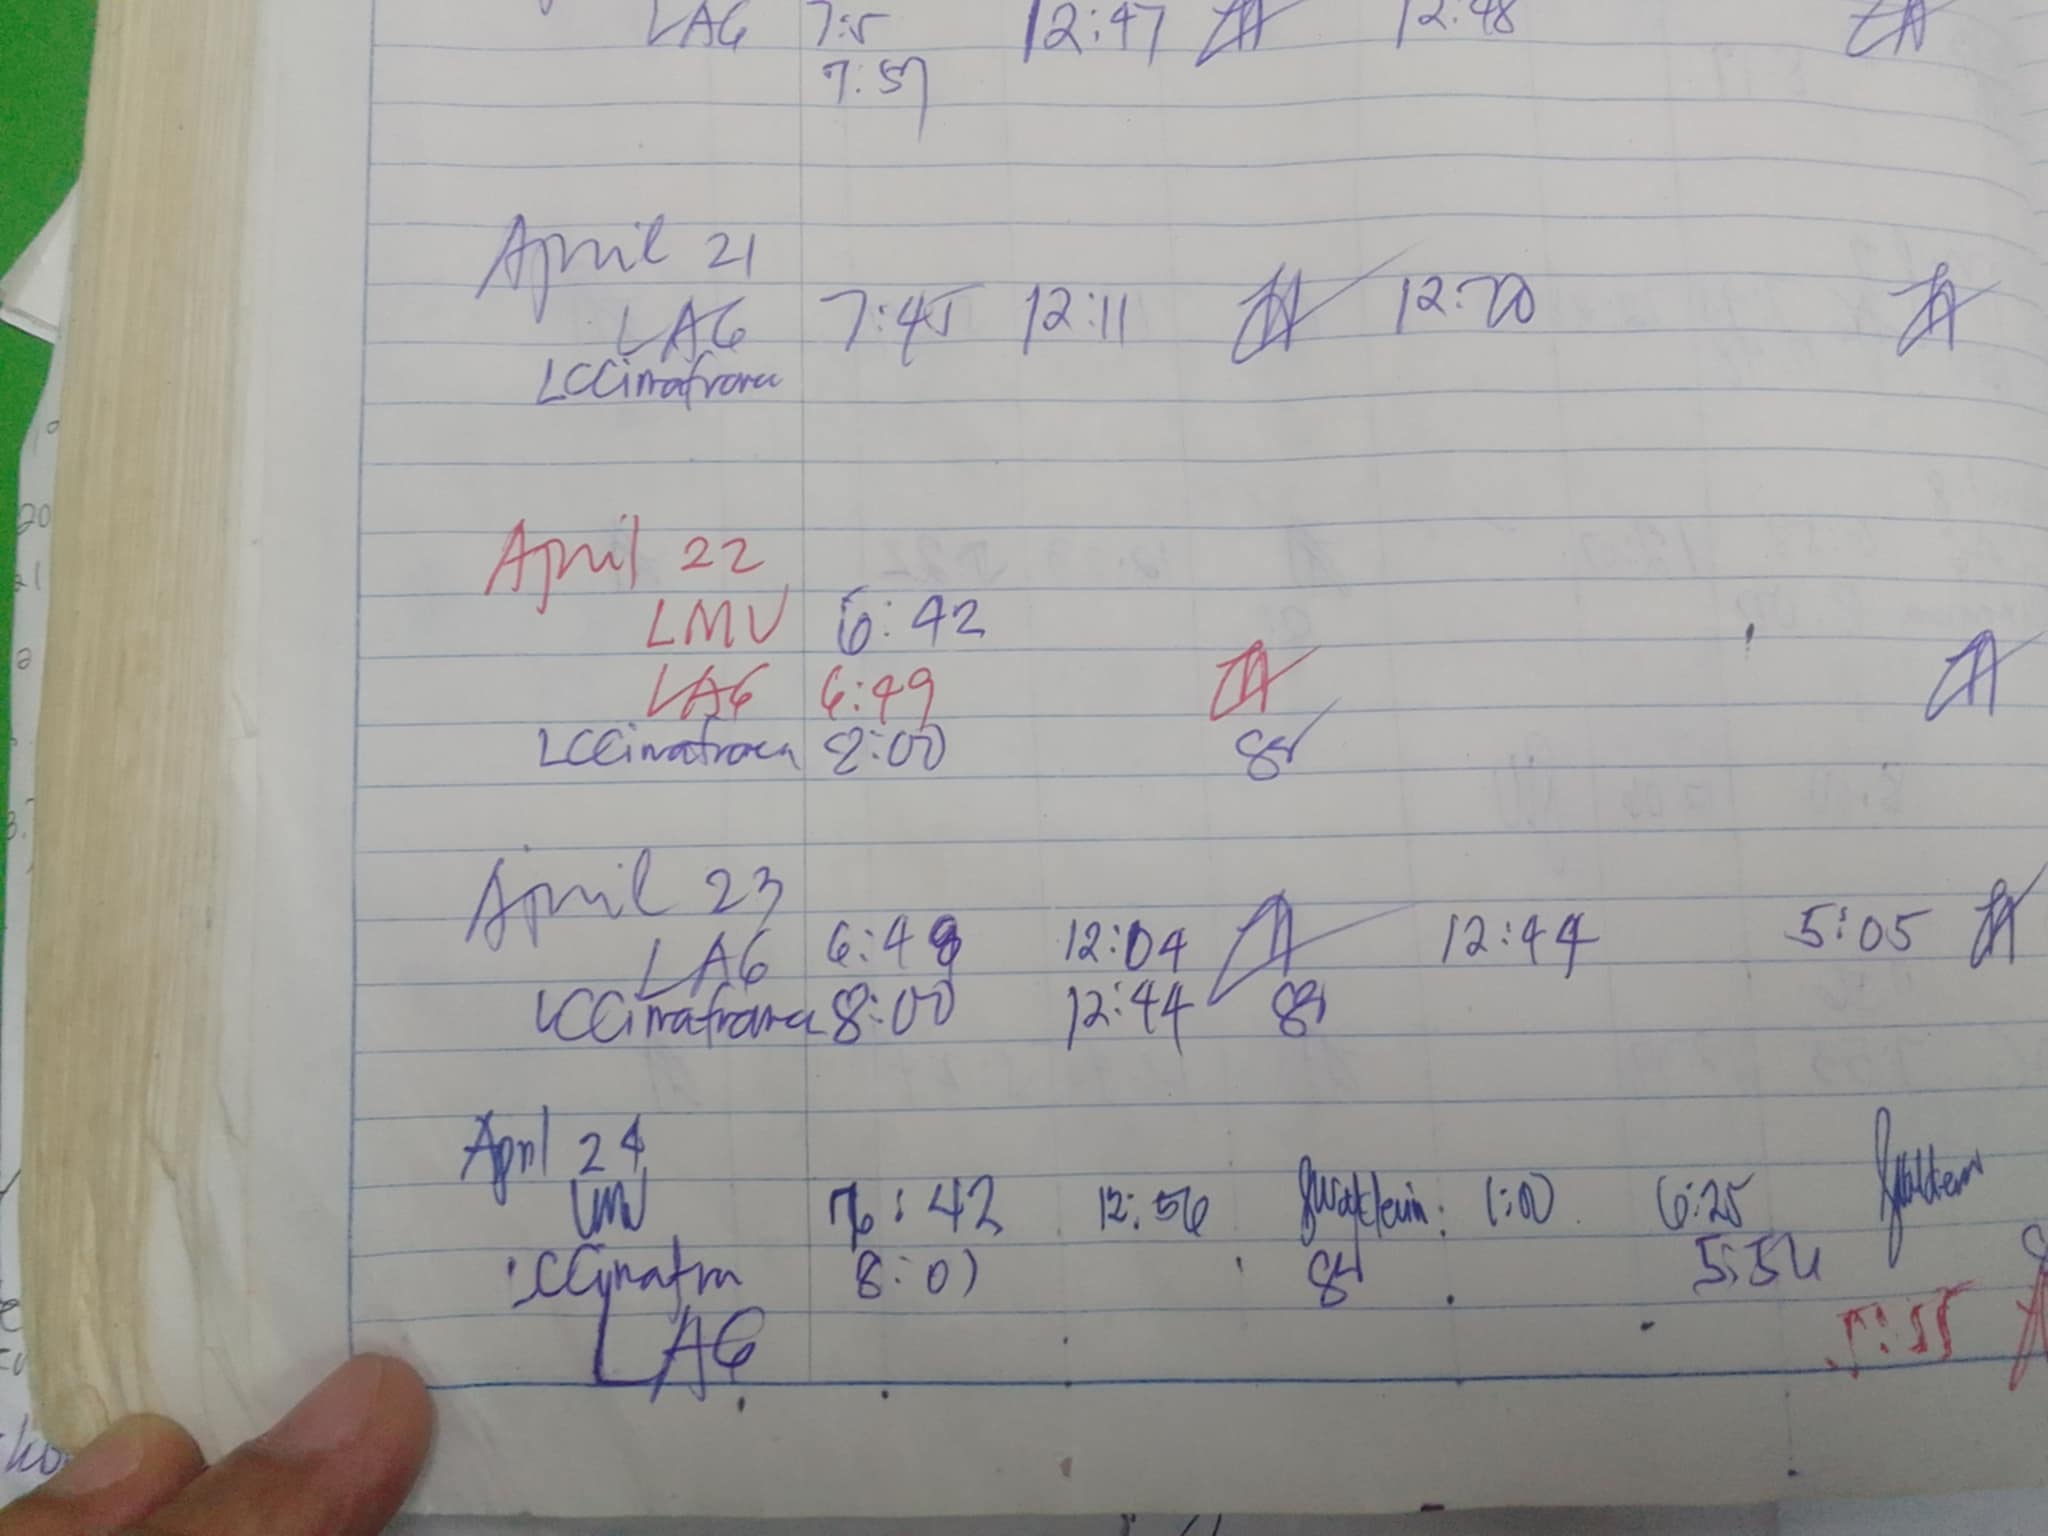 LAG 7:5 12:47 12:48
7:57
April 21
LAG 7:45 12:11 12:20
LCCimafranca
April 22
LMV 6:42
LAG 6:49
LCCimafranca 8:00
April 23
LAG 6:48 12:04 12:44 5:05
LCCimafranca 8:00 12:44
April 24
LMV 7:42 12:56 1:00 6:25
LCCimafra 8:01 5:54
LAG 5:55